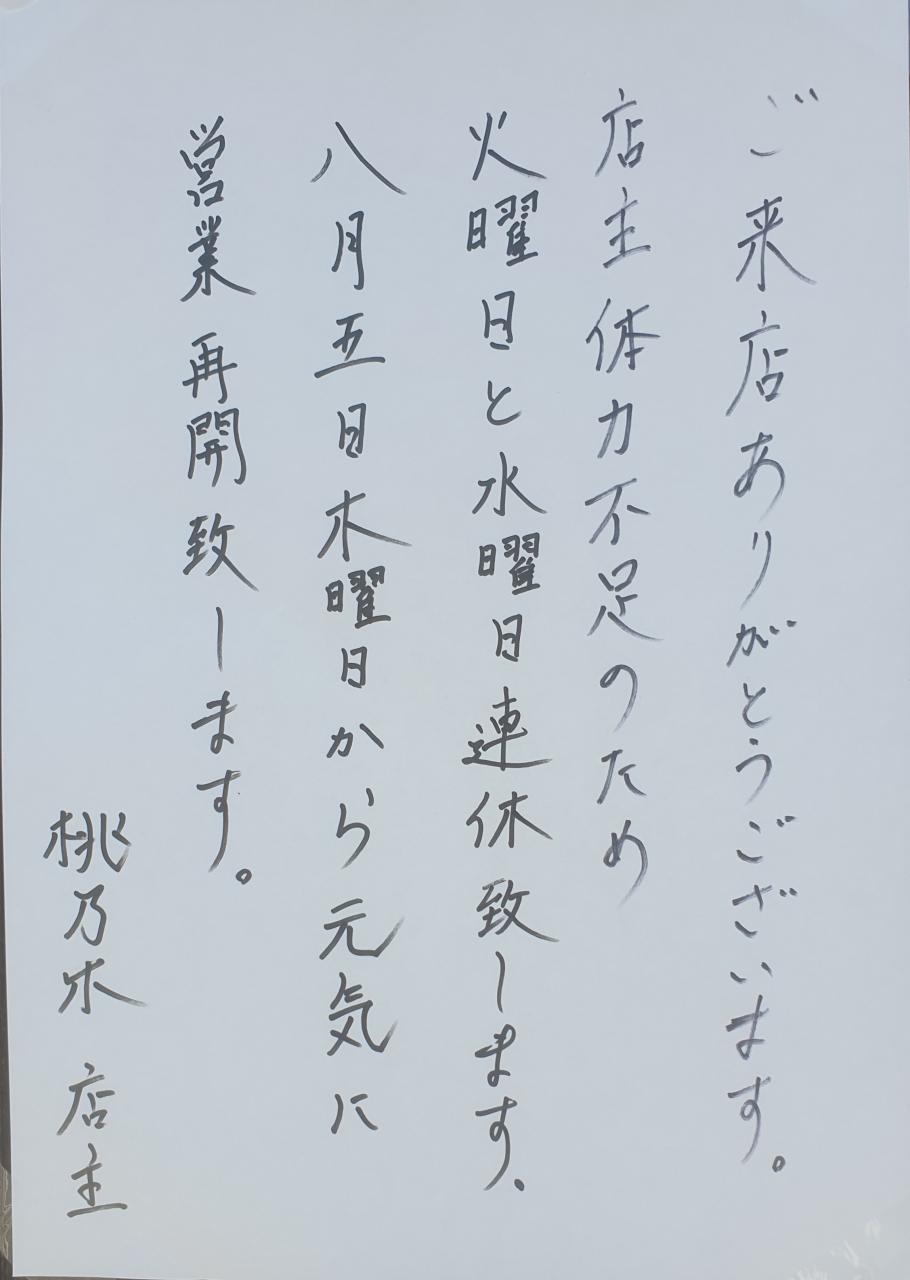 ご来店ありがとうございます。
店主体力不足のため
火曜日と水曜日連休致します、
八月五日木曜日から元気に
営業再開致します。
桃乃木 店主